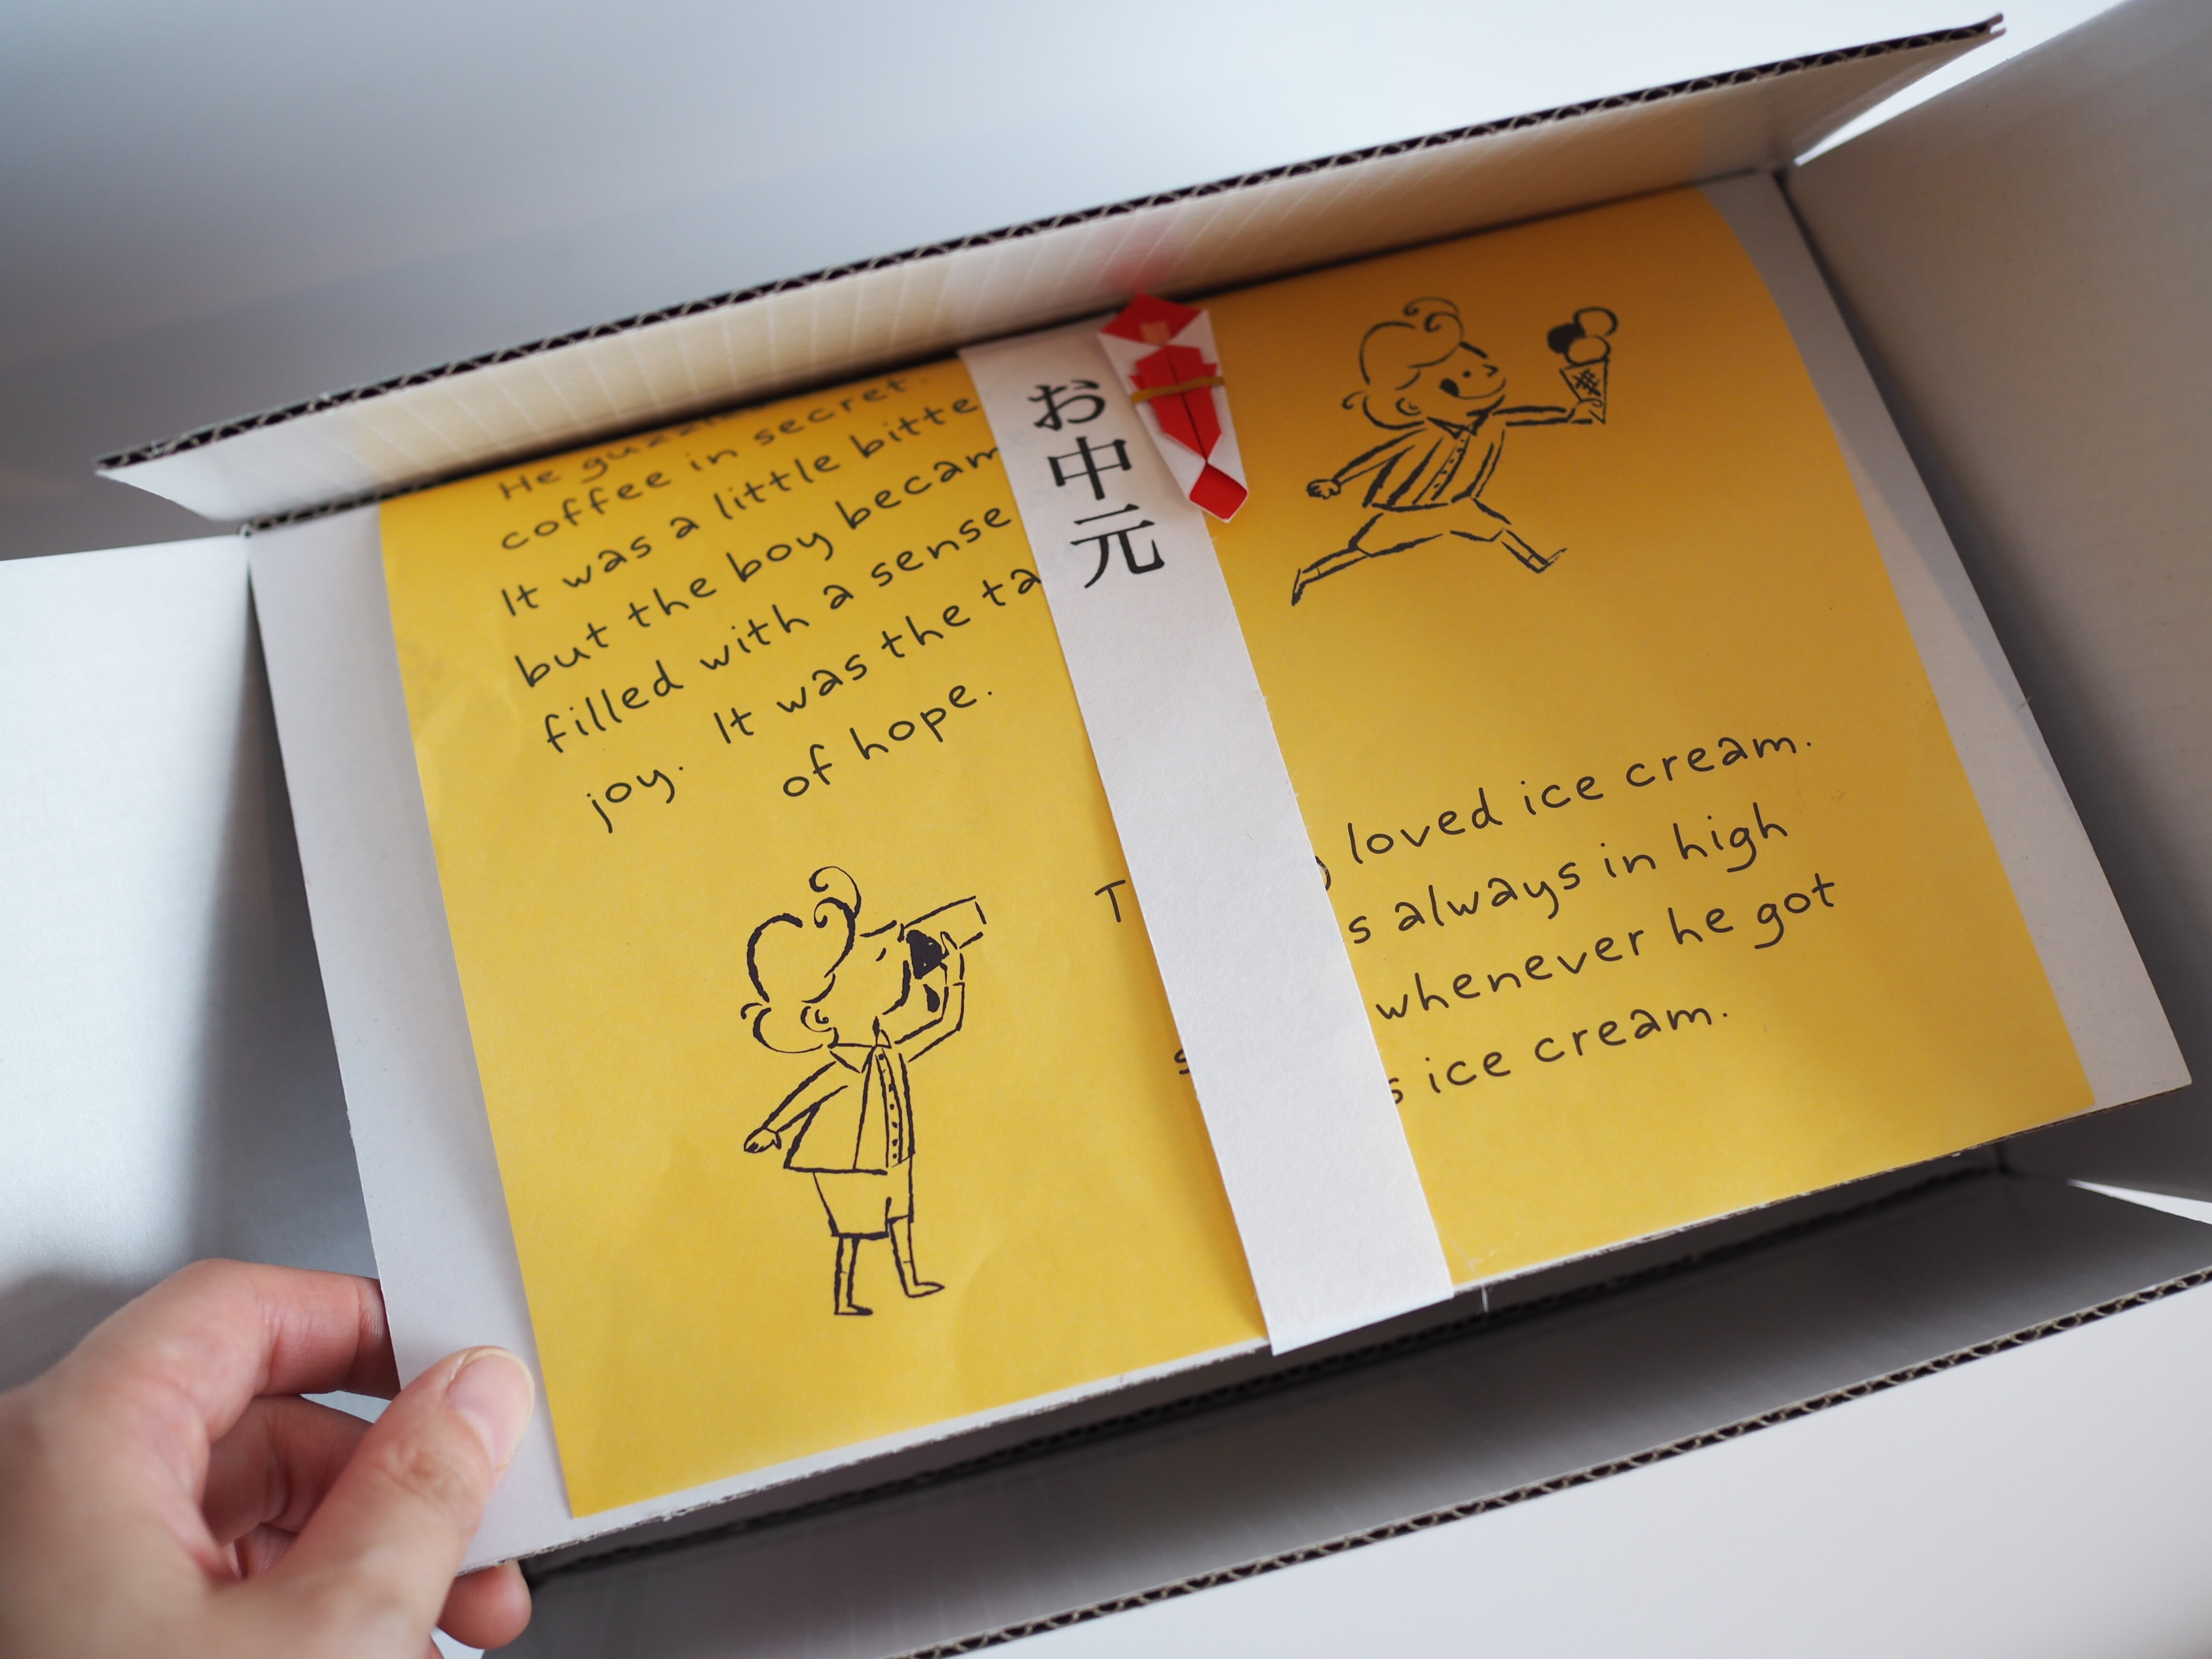 He
coffee in secret.
It was a little
but the boy
filled with a sense
joy. It was the
of hope.
お中元
loved ice cream.
always in high
whenever he got
ice cream.